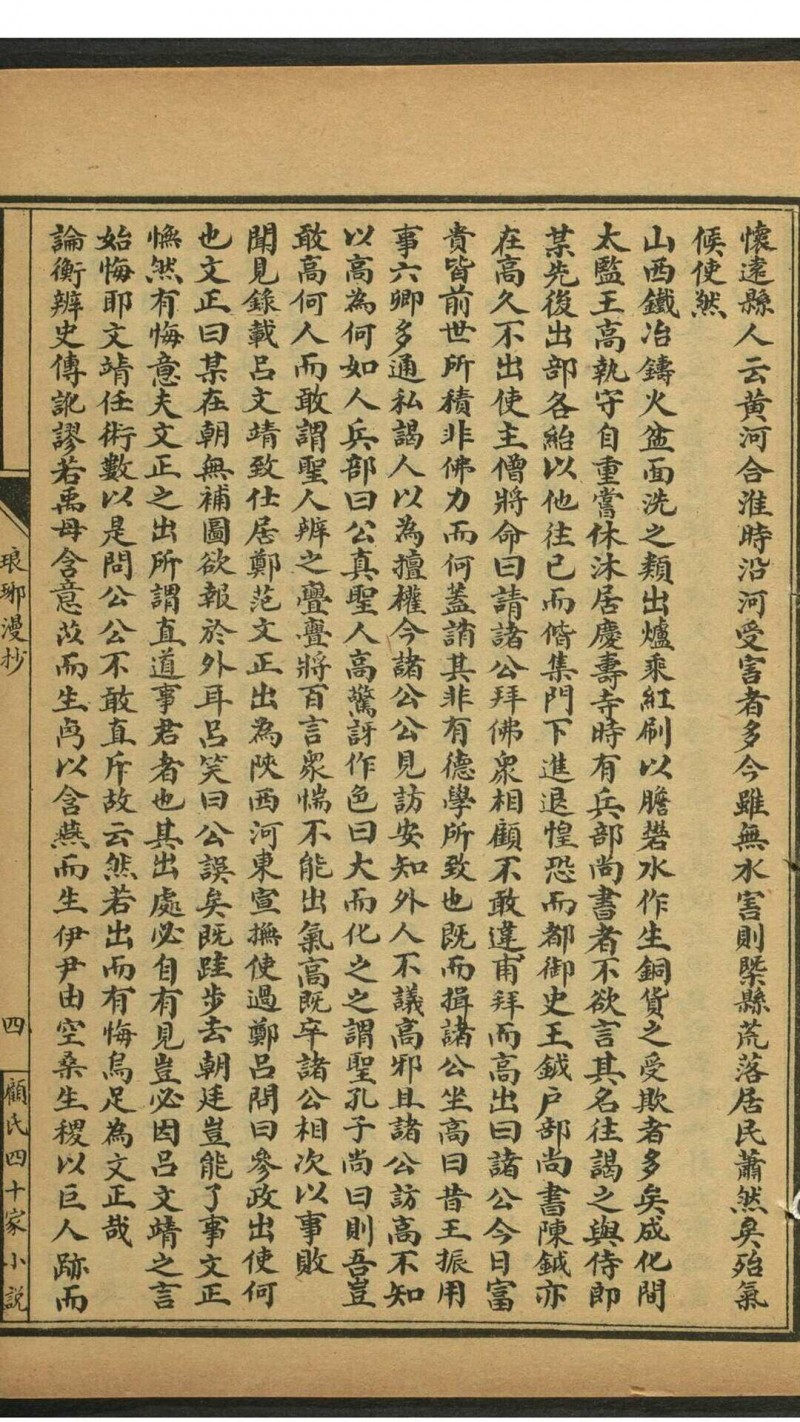 懷遠縣人云黃河合淮時沿河受害者多今雖無水害則槩縣荒落居民蕭然矣殆氣
候使然
山西鐵冶鑄火盆面洗之類出爐乘紅刷以膽礬水作生銅貨之受欺者多矣成化間
太監王高執守自重嘗休沐居慶壽寺時有兵部尚書者不欲言其名往謁之與侍郎
某先後出部各紿以他往已而偕集門下進退惶恐而都御史王鉞戶部尚書陳鉞亦
在高久不出使主僧將命曰請諸公拜佛衆相顧不敢違甫拜而高出曰諸公今日富
貴皆前世所積非佛力而何蓋誚其非有德學所致也既而揖諸公坐高曰昔王振用
事六卿多通私謁人以為擅權今諸公公見訪安知外人不議高邪且諸公訪高不知
以高為何如人兵部曰公真聖人高驚訝作色曰大而化之之謂聖孔子尚曰則吾豈
敢高何人而敢謂聖人辨之亹亹將百言衆惴不能出氣高既卒諸公相次以事敗
聞見錄載呂文靖致仕居鄭范文正出為陝西河東宣撫使過鄭呂問曰參政出使何
也文正曰某在朝無補圖欲報於外耳呂笑曰公誤矣既跬步去朝廷豈能了事文正
憮然有悔意夫文正之出所謂直道事君者也其出處必自有見豈必因呂文靖之言
始悔耶文靖任術數以是問公公不敢直斥故云然若出而有悔烏足為文正哉
論衡辨史傳訛謬若禹母含意苡而生禼以含燕而生伊尹由空桑生稷以巨人跡而
琅琊漫抄
四
顧氏四十家小說